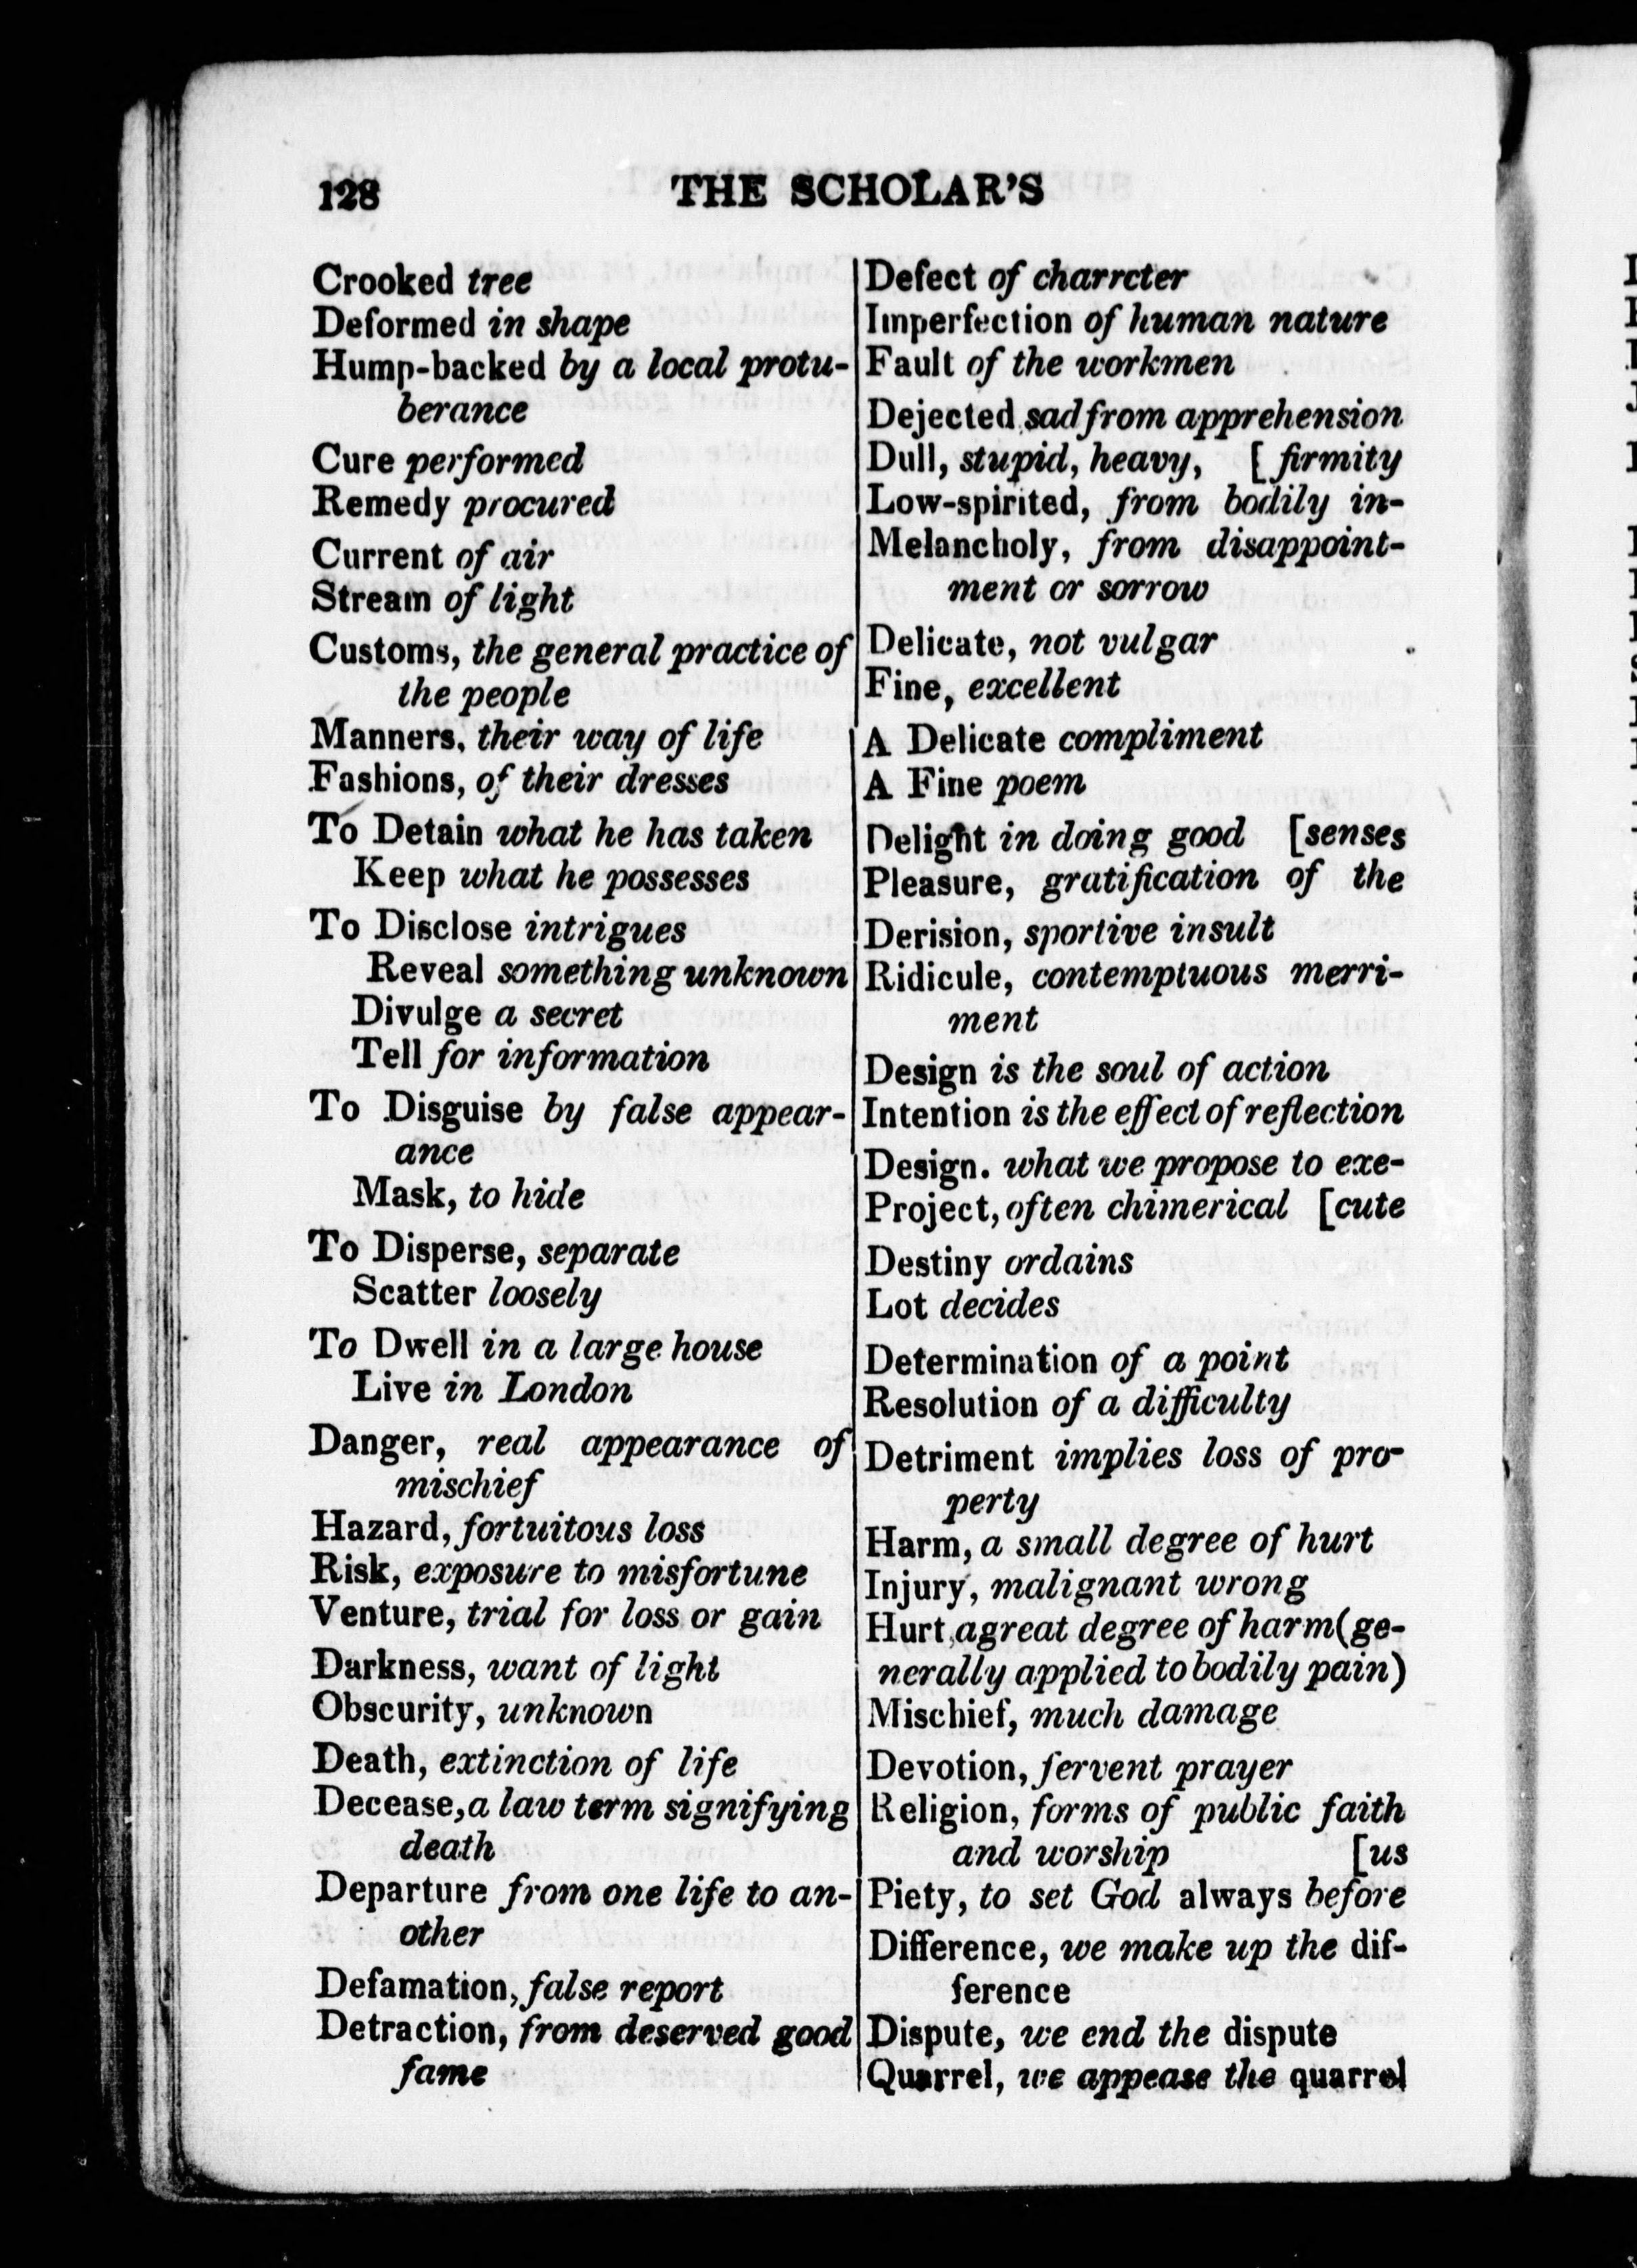 128
THE SCHOLAR'S
Crooked tree
Deformed in shape
Hump-backed by a local protu-
berance
Cure performed
Remedy procured
Current of air
Stream of light
Customs, the general practice of
the people
Manners, their way of life
Fashions, of their dresses
To Detain what he has taken
Keep what he possesses
To Disclose intrigues
Reveal something unknown
Divulge a secret
Tell for information
To Disguise by false appear-
ance
Mask, to hide
To Disperse, separate
Scatter loosely
To Dwell in a large house
Live in London
Danger, real appearance of
mischief
Hazard, fortuitous loss
Risk, exposure to misfortune
Venture, trial for loss or gain
Darkness, want of light
Obscurity, unknown
Death, extinction of life
Decease, a law term signifying
death
Departure from one life to an-
other
Defamation, false report
Detraction, from deserved good
fame
Defect of charrcter
Imperfection of human nature
Fault of the workmen
Dejected, sad from apprehension
Dull, stupid, heavy, [firmity
Low-spirited, from bodily in-
Melancholy, from disappoint-
ment or sorrow
Delicate, not vulgar
Fine, excellent
A Delicate compliment
A Fine poem
Delight in doing good [senses
Pleasure, gratification of the
Derision, sportive insult
Ridicule, contemptuous merri-
ment
Design is the soul of action
Intention is the effect of reflection
Design. what we propose to exe-
Project, often chimerical [cute
Destiny ordains
Lot decides
Determination of a point
Resolution of a difficulty
Detriment implies loss of pro-
perty
Harm, a small degree of hurt
Injury, malignant wrong
Hurt, a great degree of harm (ge-
nerally applied to bodily pain)
Mischief, much damage
Devotion, fervent prayer
Religion, forms of public faith
and worship [us
Piety, to set God always before
Difference, we make up the dif-
ference
Dispute, we end the dispute
Quarrel, we appease the quarrel